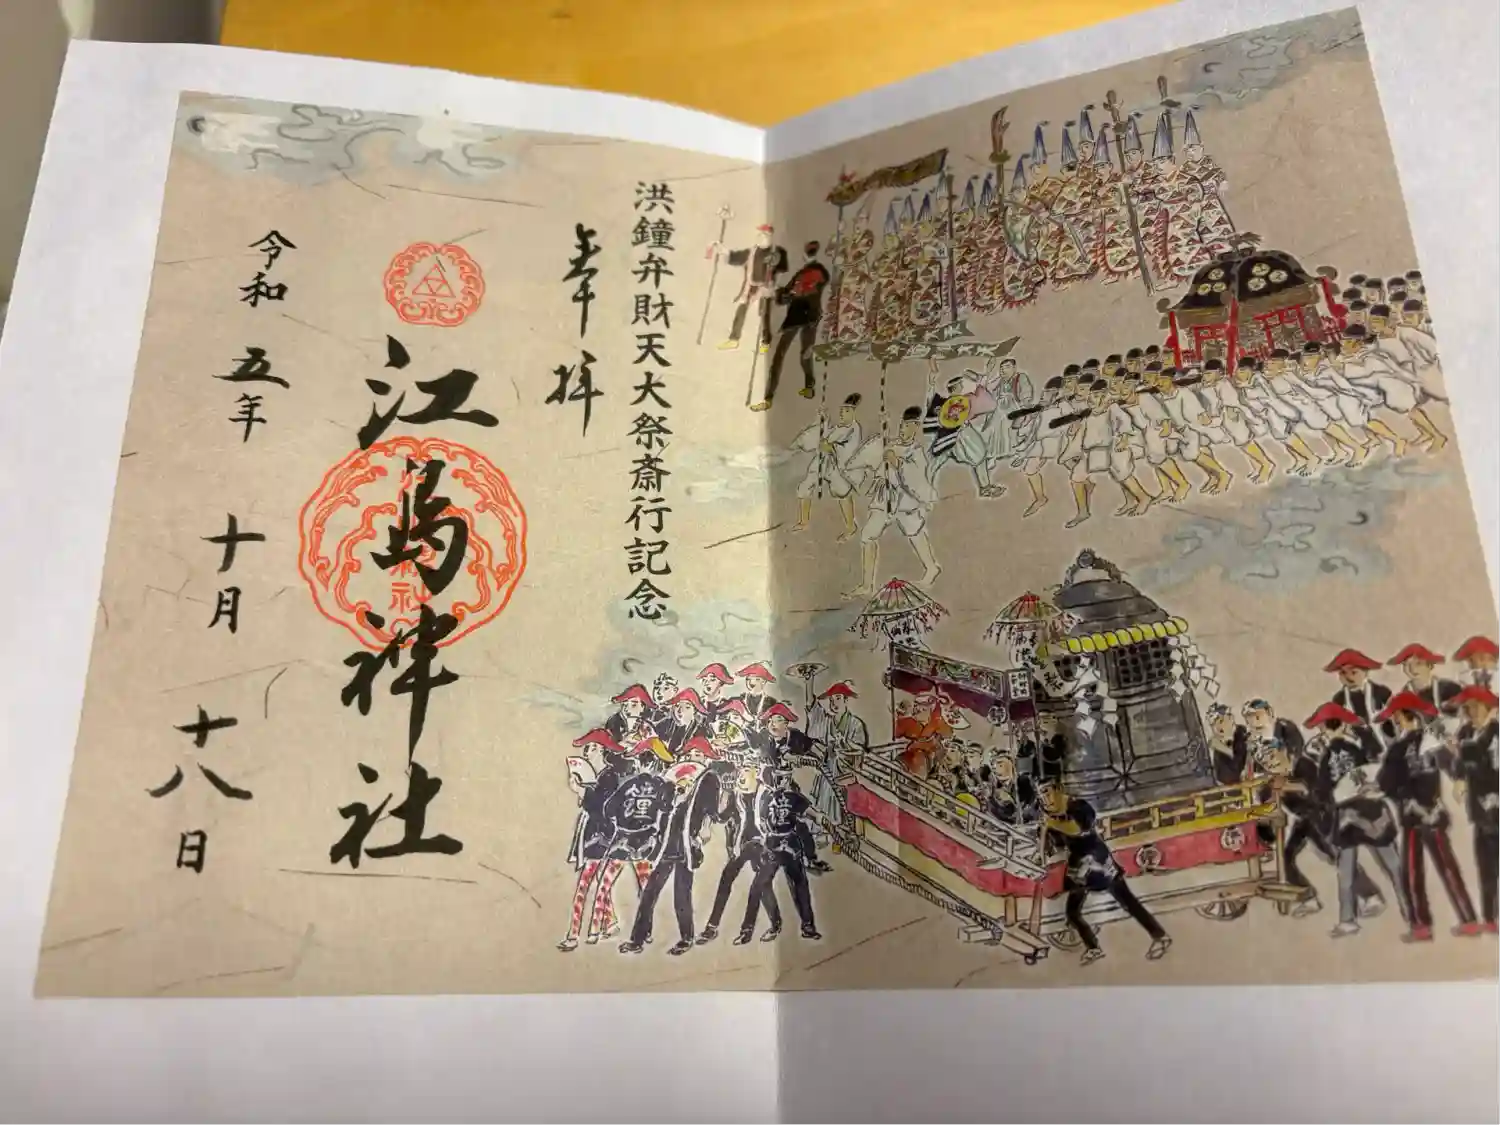 洪鐘弁財天大祭斎行記念
奉拝
江島神社
令和五年十月十八日
鐘
鐘